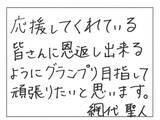 応援してくれている
皆さんに恩返し出来る
ようにグランプリ目指して
頑張りたいと思います。
網代 聖人